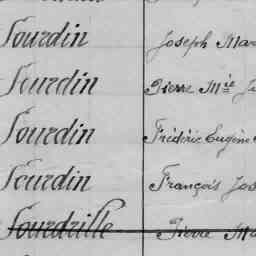 Sourdin Joseph Mar
Sourdin Pierre Mie Ju
Sourdin Frédéric Eugène
Sourdin François Jos
Sourdrille Pierre Ma